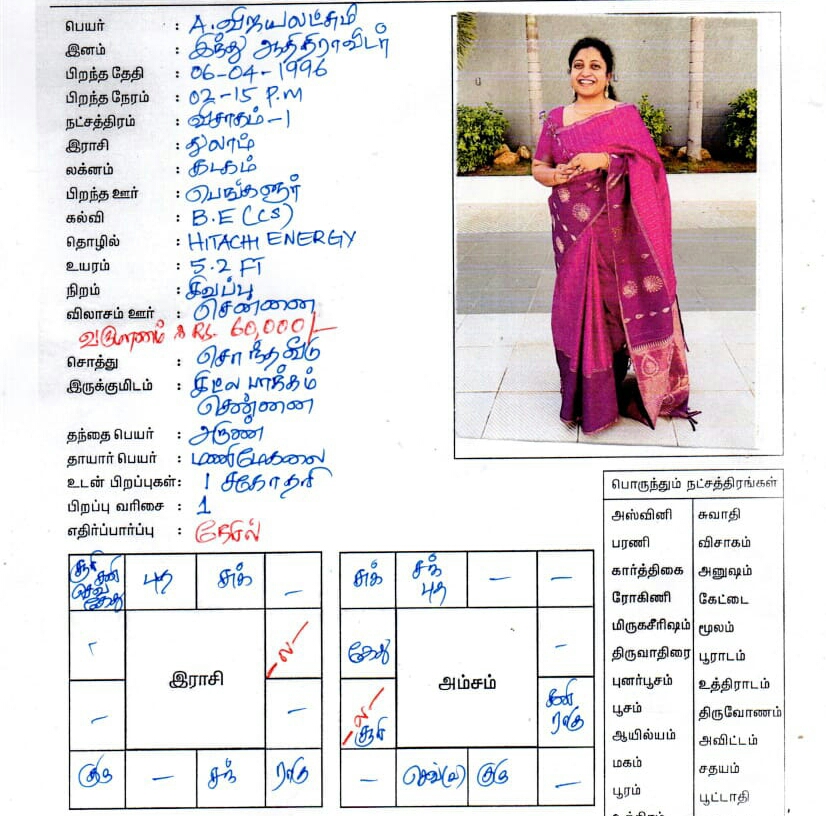 பெயர் : A. விஜயலட்சுமி
இனம் : இந்து ஆதிதிராவிடர்
பிறந்த தேதி : 06-04-1996
பிறந்த நேரம் : 02-15 P.M
நட்சத்திரம் : விசாகம்-1
இராசி : துலாம்
லக்னம் : கடகம்
பிறந்த ஊர் : பெங்களூர்
கல்வி : B.E (CS)
தொழில் : HITACHI ENERGY
உயரம் : 5.2 FT
நிறம் : சிவப்பு
விலாசம் ஊர் : சென்னை
வருமானம் Rs. 60,000/-
சொத்து : சொந்தவீடு
இருக்குமிடம் :
சென்னை
தந்தை பெயர் : அருண்
தாயார் பெயர் : மணிமேகலை
உடன் பிறப்புகள் : 1 சகோதரி
பிறப்பு வரிசை : 1
எதிர்ப்பார்ப்பு : நேரில்
சூரி சனி செவ் கேது
புத
சுக்
-
ல
-
-
இராசி
குரு
-
சந்
ராகு
சுக்
சந் புத
-
-
கேது
-
ல சூரி
சனி ராகு
அம்சம்
-
செவ்(வ)
குரு
-
பொருந்தும் நட்சத்திரங்கள்
அஸ்வினி சுவாதி
பரணி விசாகம்
கார்த்திகை அனுஷம்
ரோகிணி கேட்டை
மிருகசீரிஷம் மூலம்
திருவாதிரை பூராடம்
புனர்பூசம் உத்திராடம்
பூசம் திருவோணம்
ஆயில்யம் அவிட்டம்
மகம் சதயம்
பூரம் பூட்டாதி